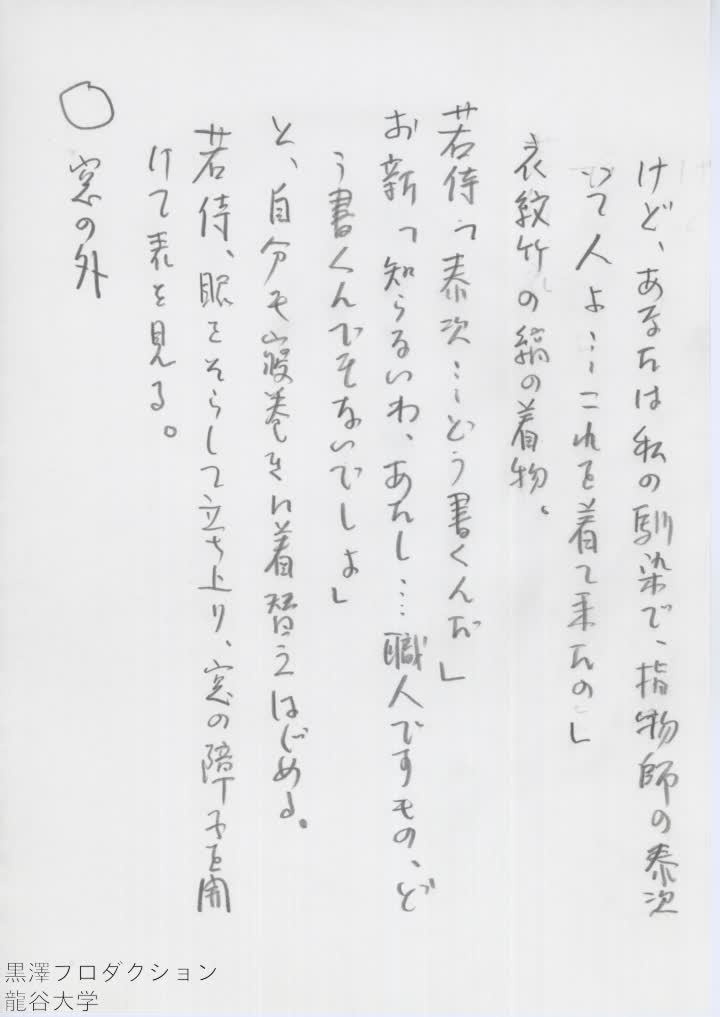 けど、あなたは私の馴染で、指物師の泰次
って人よ…これを着て来たの」
衣紋竹の縞の着物。
若侍「泰次…どう書くんだ」
お新「知らないわ、あたし…職人ですもの、ど
う書くんでもないでしょ」
と、自分も寝巻きに着替えはじめる。
若侍、眼をそらして立ち上り、窓の障子を開
けて表を見る。
○ 窓の外
黒澤プロダクション
龍谷大学